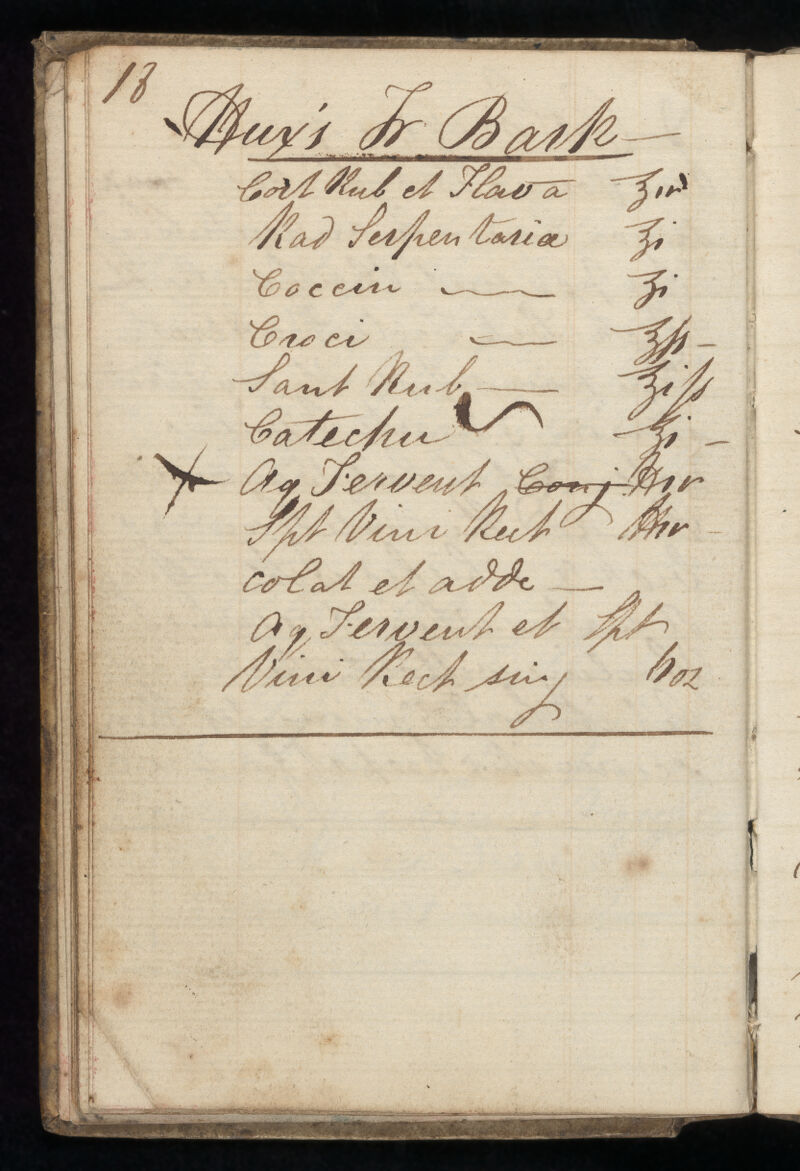 18
Hux's Tr Bark —
Cort Rub et Flava ʒiv
Rad Serpentaria ʒi
Coccin — ʒi
Croci — ʒſs —
Sant Rub — ʒiſs
Catechu ʒi —
Aq Fervent Conj ℔iv
Spt Vini Rect ℔iv —
colat et adde —
Aq Fervent et Spt
Vini Rect sing